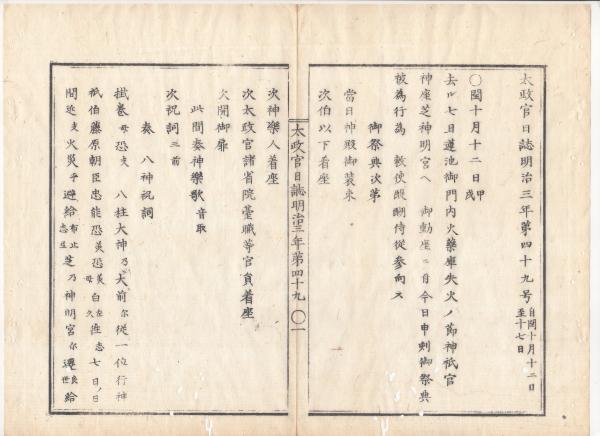 太政官日誌明治三年第四十九号 自閏十月十二日至十七日
〇閏十月十二日 甲戌
去ル七日蓮池御門内火藥庫失火ノ節神祇官
神座芝神明宮ヘ 御動座ニ付今日申刻御祭典
被為行為 勅使醍醐侍従参向ス
御祭典次第
當日神殿御装束
次伯以下着座
太政官日誌明治三年第四十九 〇一
次神樂人着座
次太政官諸省院臺職等官員着座
次開御扉
此間奏神樂歌 音取
次祝詞 三前
奏 八神祝詞
掛巻母恐支 八柱大神乃大前尓従一位行神
祇伯藤原朝臣忠能恐美恐美母白左久 去志七日ノ日
間近支火災乎避給布止志弖芝乃神明宮尓遷良世給